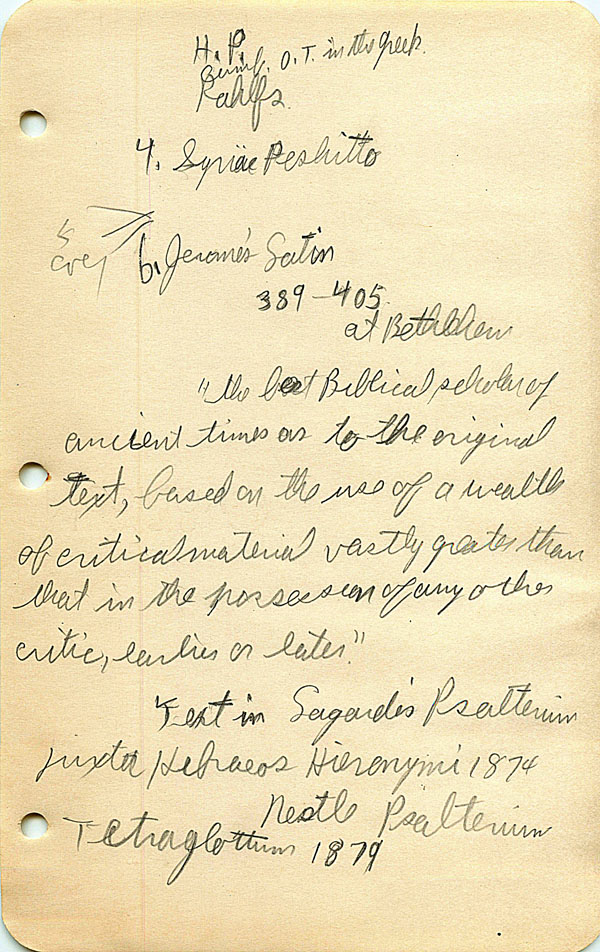 H. P.
O. T. in the Greek.
Rahlfs.
4. Syriac Peshitto
over
6. Jerome's Latin
389 – 405.
at Bethlehem
"the best Biblical scholar of
ancient times as to the original
text, based on the use of a wealth
of critical material vastly greater than
that in the possession of any other
critic, earlier or later."
Text in Lagarde's Psalterium
juxta Hebraeos Hieronymi 1874
Nestle Psalterium
Tetraglottum 1879